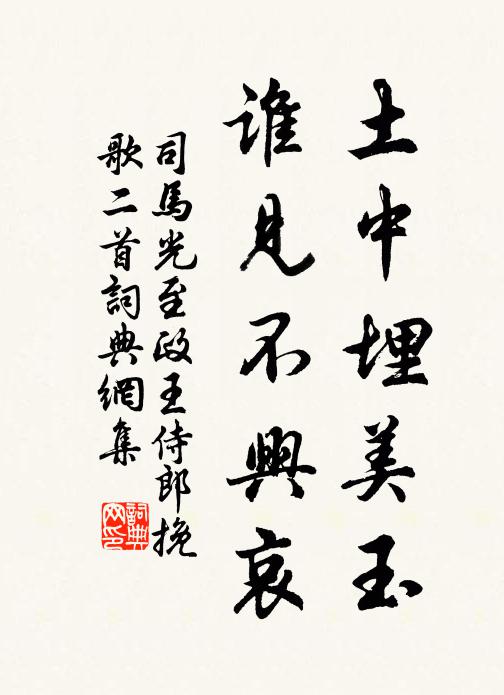 土中埋美玉
誰見不興哀
司馬光至政王侍郎挽
歌二首詞典網集
詞典
网印